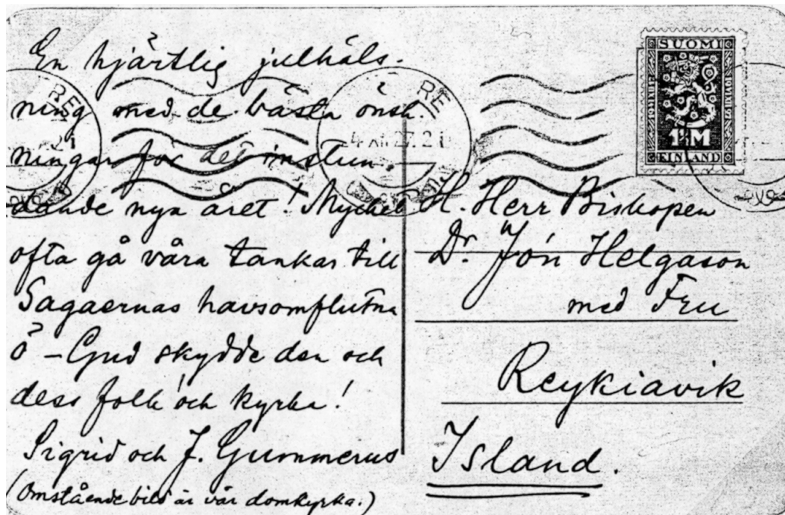 En hjärtlig julhäls-
ning med de bästa önsk-
ningar för det instun-
dande nya året! Mycket
ofta gå våra tankar till
Sagaernas havsomflutna
ö – Gud skydde den och
dess folk och kyrka!
Sigrid och J. Gummerus
(Omstående bild är vår domkyrka.)
SUOMI
1½M
FINLAND
H. Herr Biskopen
Dr. Jón Helgason
med Fru
Reykiavik
Island.